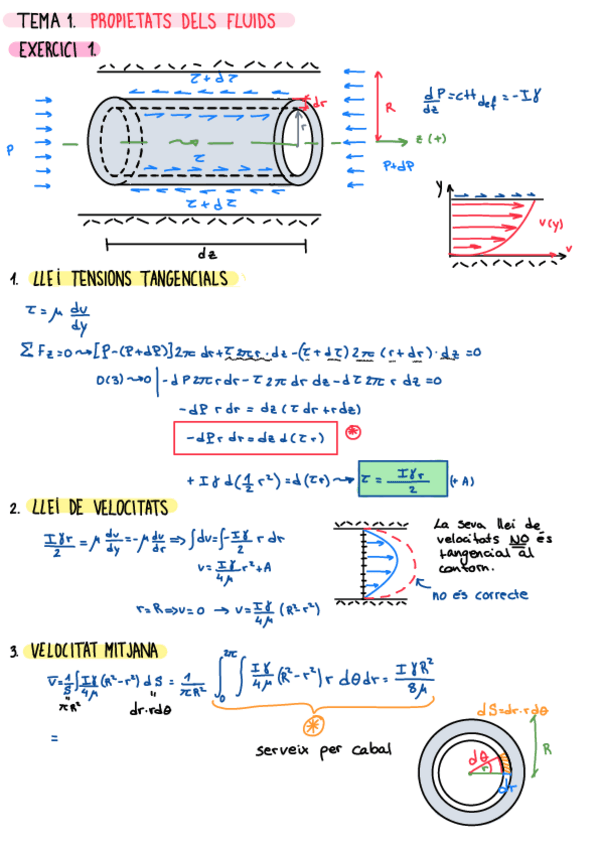 TEMA 1. PROPIETATS DELS FLUIDS
EXERCICI 1.
τ+dτ
dr
R
r
dP/dz = ctt def = -Iγ
z (+)
P
τ
P+dP
τ+dτ
dz
y
v(y)
v
1. LLEI TENSIONS TANGENCIALS
τ = μ dv/dy
ΣFz=0 → [P-(P+dP)]2πr dr+τ2πr·dz-(τ+dτ)2π(r+dr)·dz =0
O(3)→0 | -dP2πrdr-τ2πdrdz-dτ2πr dz=0
-dP r dr = dz(τdr+rdτ)
-dPr dr=dz d(τr) *
+Iγd(1/2 r²)=d(τr) → τ = Iγr/2 (+A)
2. LLEI DE VELOCITATS
Iγr/2 = μ dv/dy = -μ dv/dr ⇒ ∫dv=∫-Iγ/2μ r dr
v=-Iγ/4μ r²+A
r=R⇒v=0 → v=Iγ/4μ (R²-r²)
La seva llei de
velocitats NO és
tangencial al
contorn.
no és correcte
3. VELOCITAT MITJANA
v̄=1/S∫Iγ/4μ(R²-r²)dS = 1/πR² ∫₀²π∫ Iγ/4μ(R²-r²)r dθdr = IγR²/8μ
πR²
dr·rdθ
=
*
serveix per cabal
dS=dr·rdθ
dθ
r
dr
R